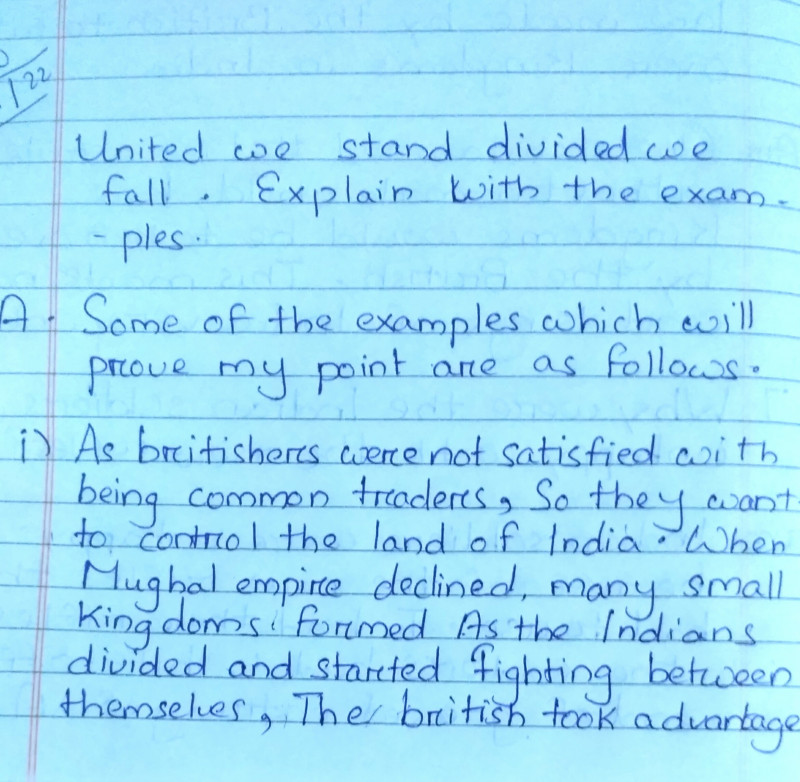 122
United we stand divided we
fall. Explain with the exam-
-ples.
A. Some of the examples which will
prove my point are as follows.
i) As britishers were not satisfied with
being common traders, So they want
to control the land of India. When
Mughal empire declined, many small
Kingdoms formed As the Indians
divided and started fighting between
themselves, The british took advantage